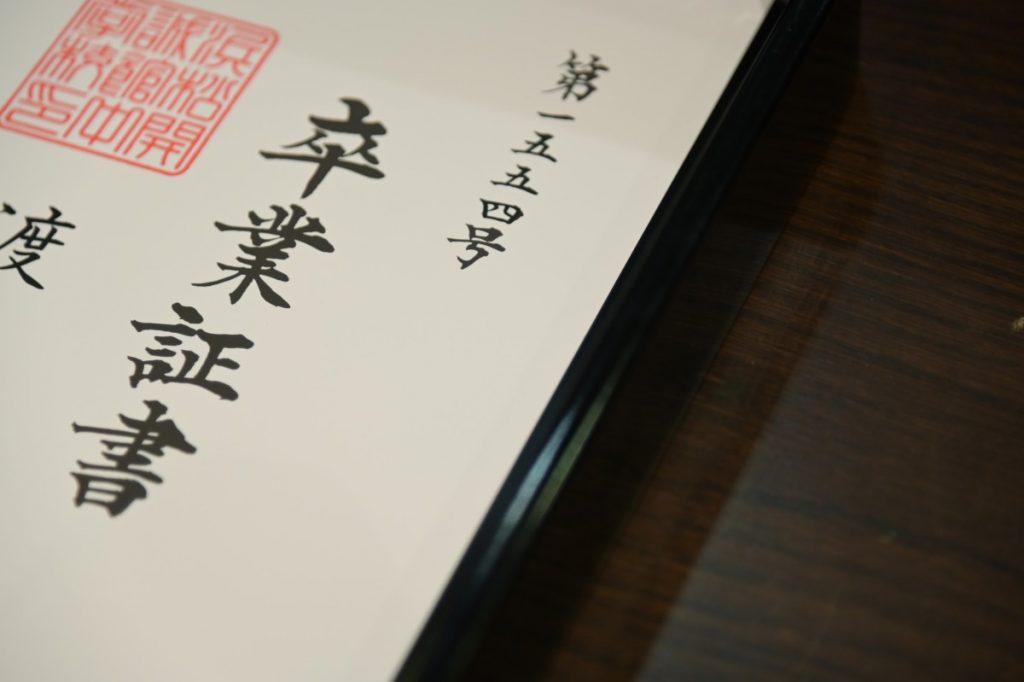 第一五五四号
卒業証書
浜松開
誠館中
学校印
渡